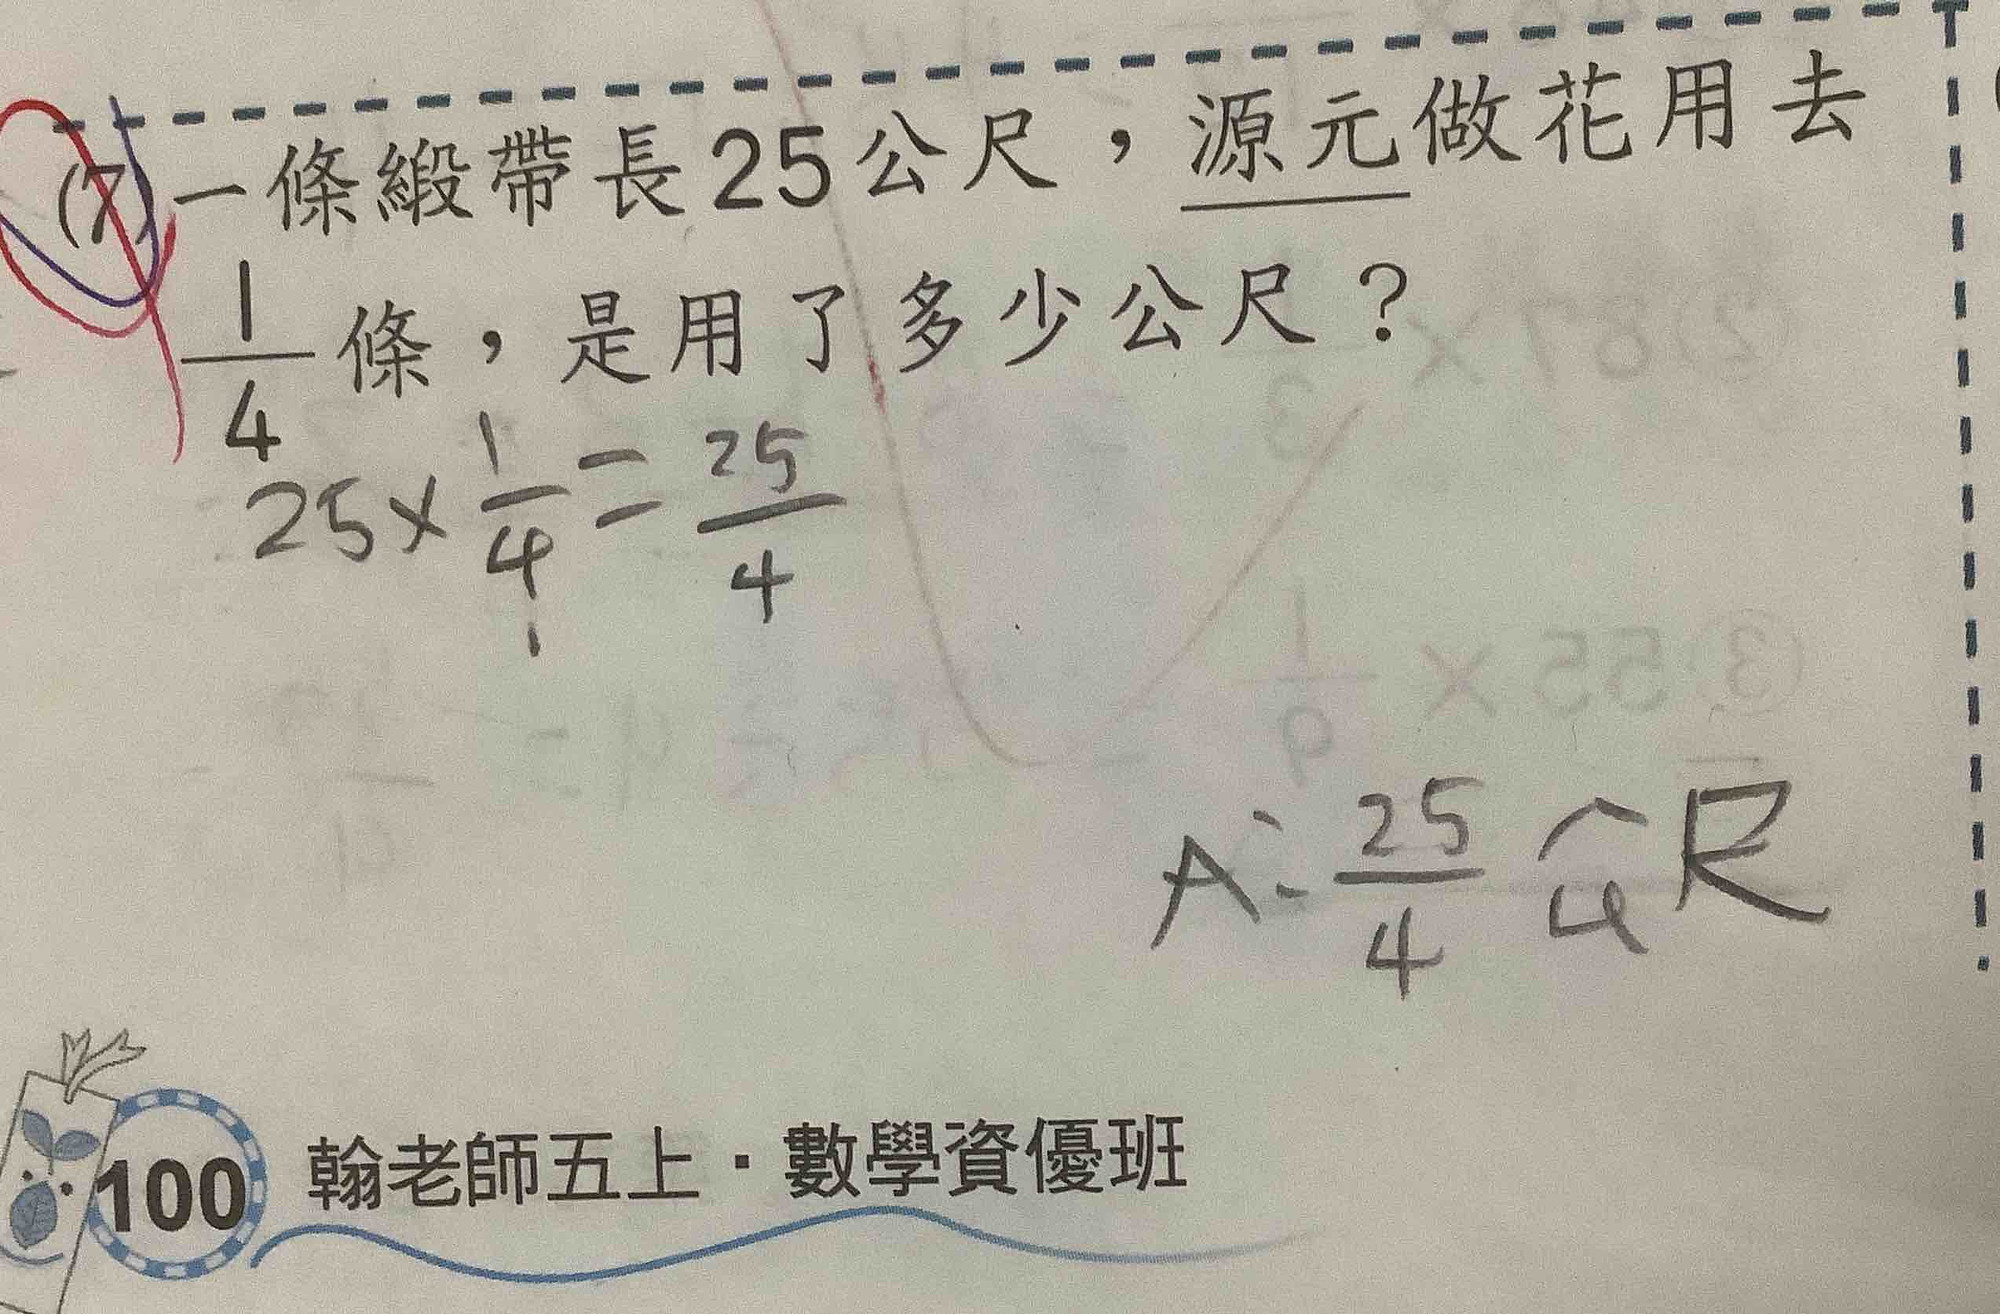 (7)一條緞帶長25公尺，源元做花用去
1/4條，是用了多少公尺？
25×1/4=25/4
A:25/4公尺
100 翰老師五上·數學資優班